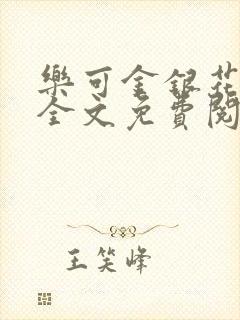 樂可金銀花
全文免費閱
王笑峰